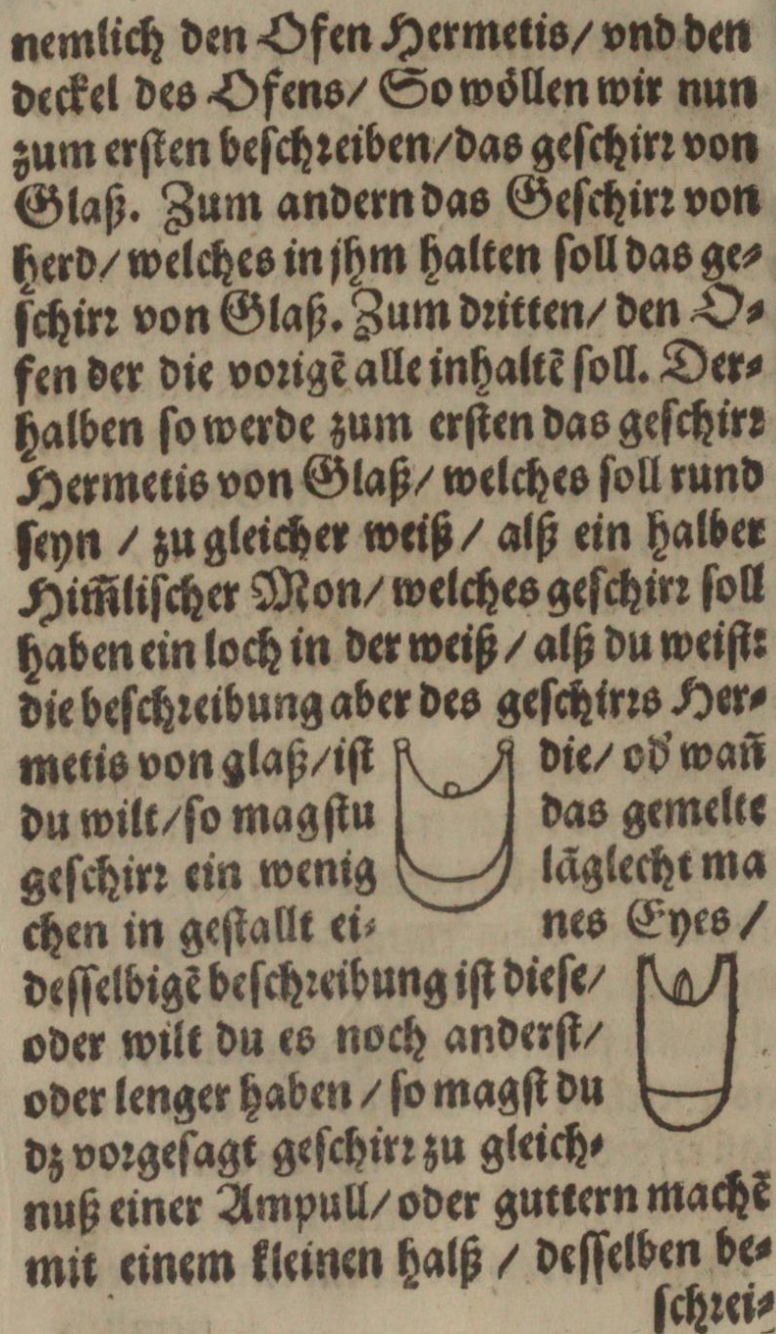 nemlich den Ofen Hermetis/ vnd den
deckel des Ofens/ So wöllen wir nun
zum ersten beschreiben/das geschirr von
Glaß. Zum andern das Geschirr von
herd/ welches in jhm halten soll das ge-
schirr von Glaß. Zum dritten/ den O-
fen der die vorigẽ alle inhaltẽ soll. Der-
halben so werde zum ersten das geschirr
Hermetis von Glaß/ welches soll rund
seyn / zu gleicher weiß/ alß ein halber
Him̃lischer Mon/ welches geschirr soll
haben ein loch in der weiß/ alß du weist:
die beschreibung aber des geschirrs Her-
metis von glaß/ist die/ od' wañ
du wilt/so magstu das gemelte
geschirr ein wenig lãglecht ma
chen in gestallt ei- nes Eyes/
desselbigẽ beschreibung ist diese/
oder wilt du es noch anderst/
oder lenger haben/ so magst du
dz vorgesagt geschirr zu gleich-
nuß einer Ampull/ oder guttern machẽ
mit einem kleinen halß / desselben be-
schrei-